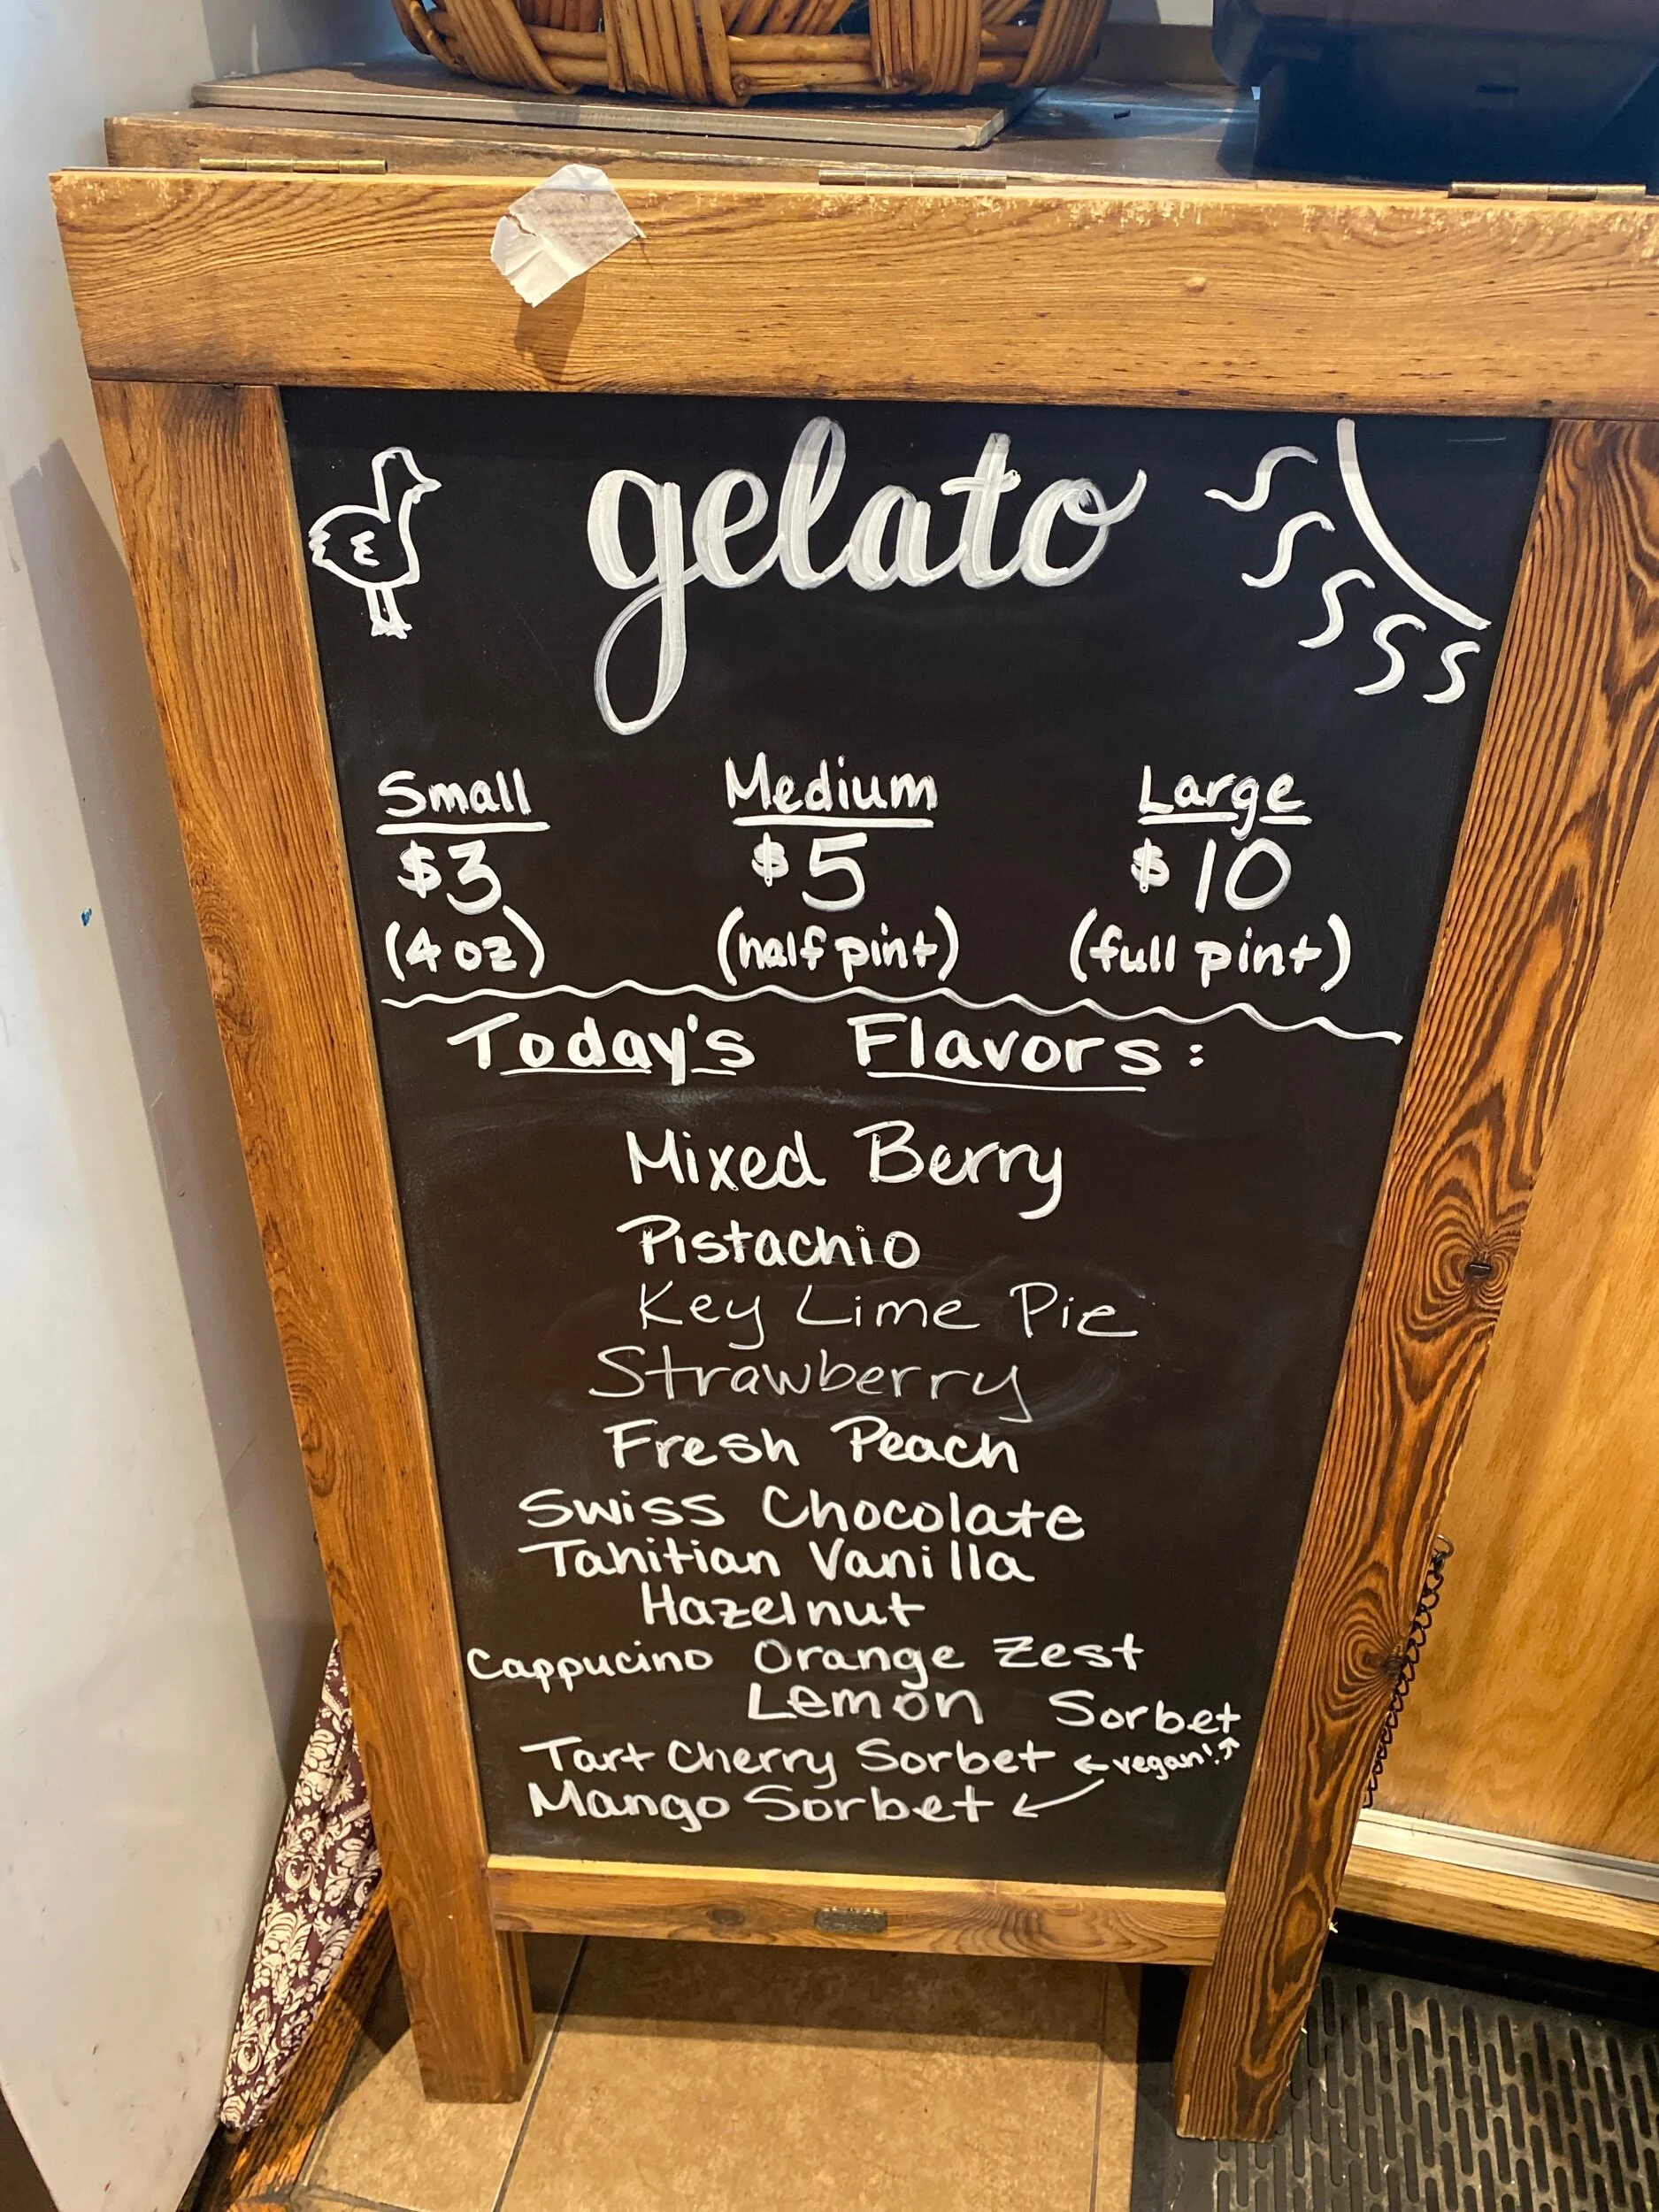 gelato
Small Medium Large
$3 $5 $10
(4 oz) (half pint) (full pint)
Today's Flavors:
Mixed Berry
Pistachio
Key Lime Pie
Strawberry
Fresh Peach
Swiss Chocolate
Tahitian Vanilla
Hazelnut
Cappucino Orange Zest
Lemon Sorbet
Tart Cherry Sorbet ← vegan! ↗
Mango Sorbet ↙